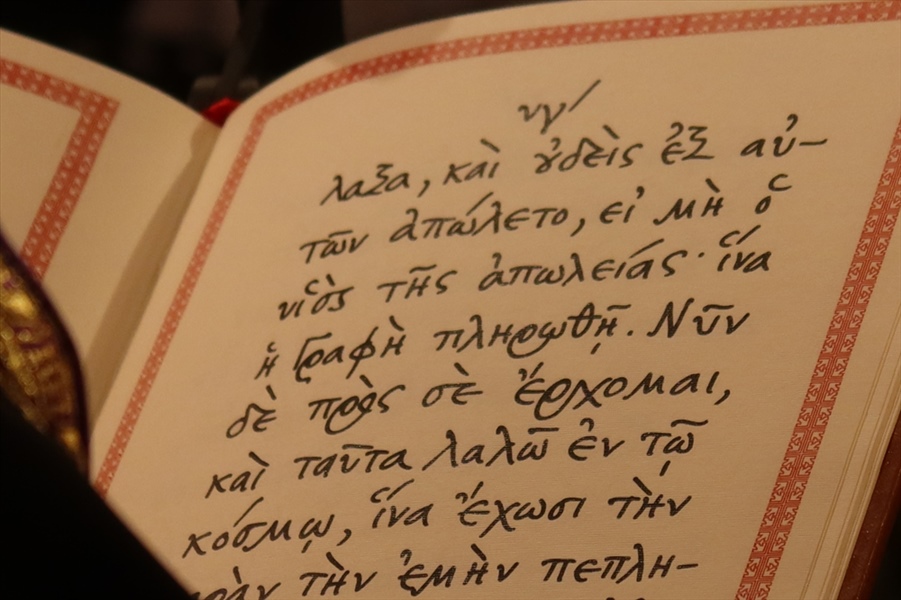 νγ/
λαξα, καὶ ȣ̓δεὶς ἐξ αὐ-
τῶν ἀπώλετο, εἰ μὴ ὁ
υἱὸς τῆς ἀπωλείας· ἵνα
ἡ Γραφὴ πληρωθῇ. Νῦν
δὲ πρὸς σὲ ἔρχομαι,
καὶ ταῦτα λαλῶ ἐν τῷ
κόσμῳ, ἵνα ἔχωσι τὴν
ρὰν τὴν ἐμὴν πεπλη-